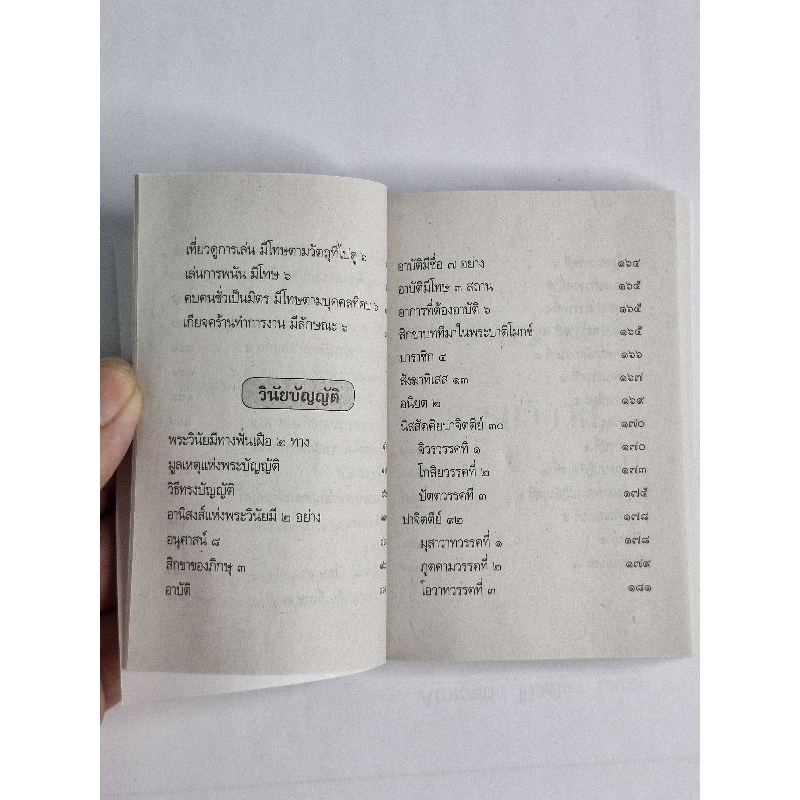 เที่ยวดูการเล่น มีโทษตามวัตถุที่ไปดู ๖
เล่นการพนัน มีโทษ ๖
คบคนชั่วเป็นมิตร มีโทษตามบุคคลที่คบ ๖
เกียจคร้านทำการงาน มีลักษณะ ๖
วินัยบัญญัติ
พระวินัยมีทางฟั่นเฝือ ๒ ทาง
มูลเหตุแห่งพระบัญญัติ
วิธีทรงบัญญัติ
อานิสงส์แห่งพระวินัยมี ๒ อย่าง
อนุศาสน์ ๘
สิกขาของภิกษุ ๓
อาบัติ
อาบัติมีชื่อ ๗ อย่าง ๑๖๔
อาบัติมีโทษ ๓ สถาน ๑๖๕
อาการที่ต้องอาบัติ ๖ ๑๖๕
สิกขาบทที่มาในพระปาติโมกข์ ๑๖๕
ปาราชิก ๔ ๑๖๖
สังฆาทิเสส ๑๓ ๑๖๗
อนิยต ๒ ๑๖๙
นิสสัคคิยปาจิตตีย์ ๓๐ ๑๗๐
จีวรวรรคที่ ๑ ๑๗๐
โกสิยวรรคที่ ๒ ๑๗๓
ปัตตวรรคที่ ๓ ๑๗๕
ปาจิตตีย์ ๙๒ ๑๗๘
มุสาวาทวรรคที่ ๑ ๑๗๘
ภูตคามวรรคที่ ๒ ๑๗๙
โอวาทวรรคที่ ๓ ๑๘๑